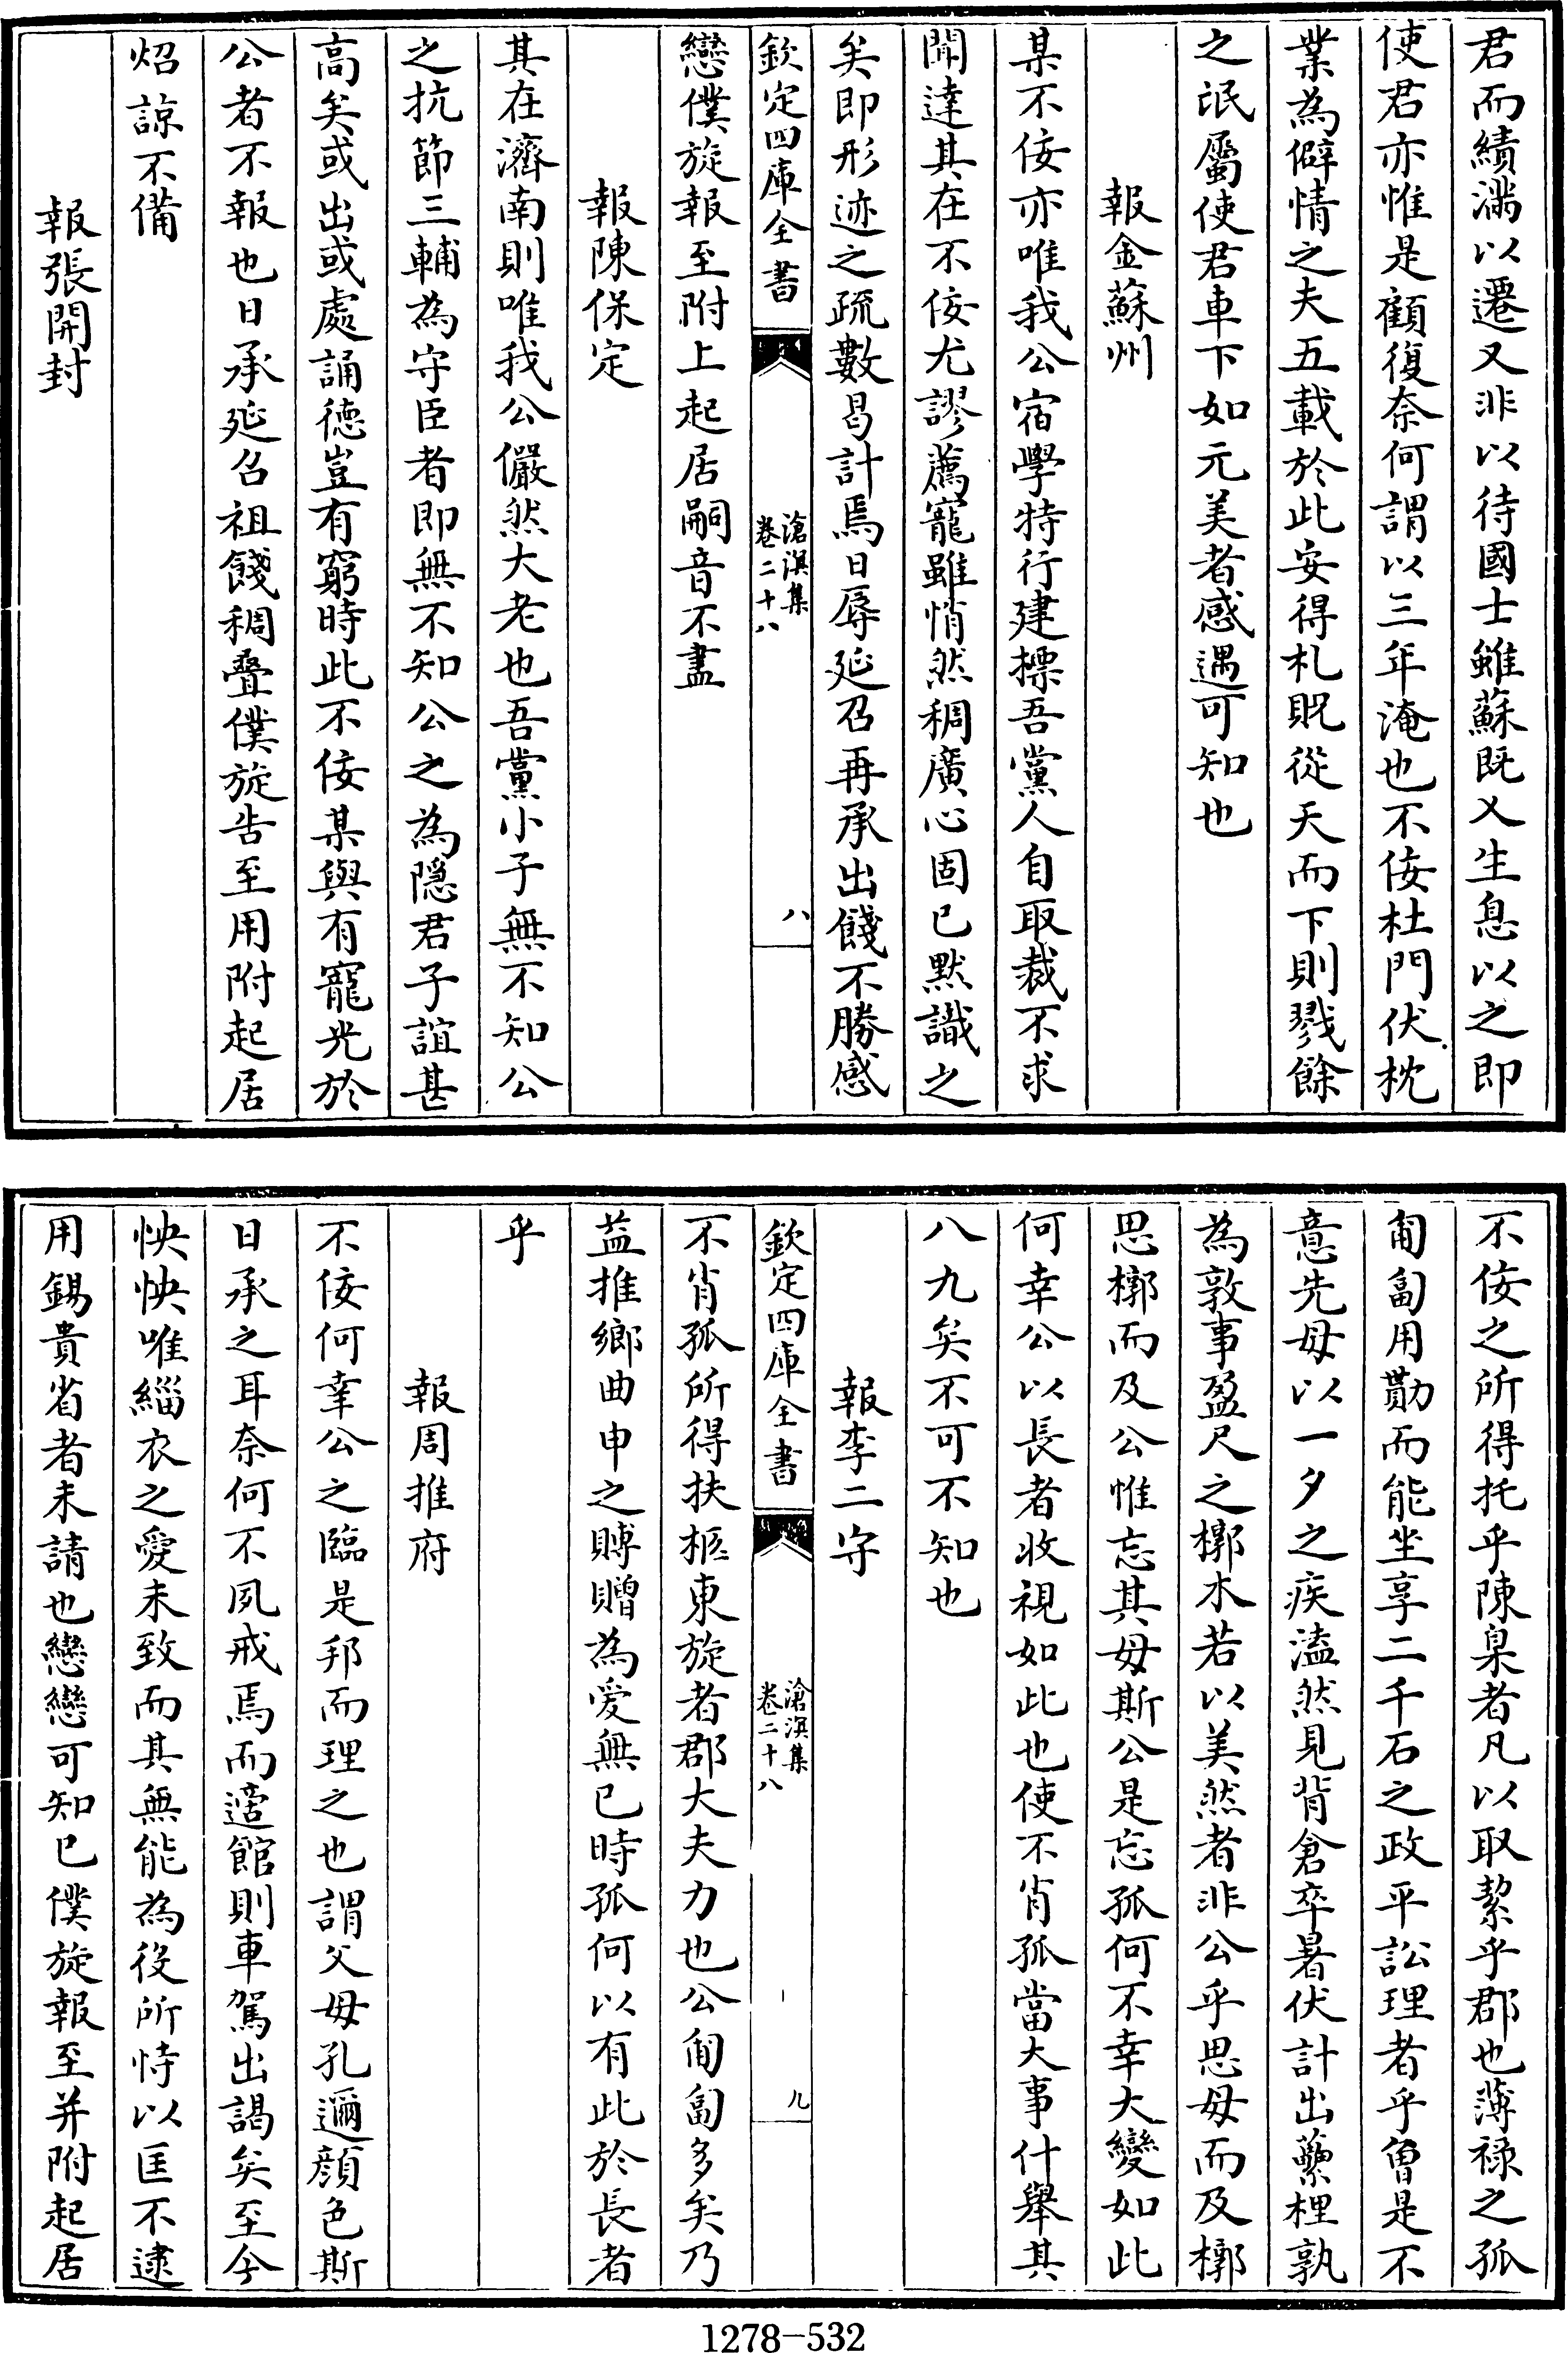 君而績滿以遷又非以待國士雖蘇既乂生息以之即
使君亦惟是顧復奈何謂以三年淹也不佞杜門伏枕
業為僻情之夫五載於此安得札貺從天而下則戮餘
之氓屬使君車下如元美者感遇可知也
報金蘇州
某不佞亦唯我公宿學特行建標吾黨人自取裁不求
聞達其在不佞尤謬薦寵雖悄然稠廣心固已默識之
矣即形迹之疏數曷計焉日辱延召再承出餞不勝感
欽定四庫全書
滄溟集
卷二十八
八
戀僕旋報至附上起居嗣音不盡
報陳保定
某在濟南則唯我公儼然大老也吾黨小子無不知公
之抗節三輔為守臣者即無不知公之為隱君子誼甚
高矣或出或處誦德豈有窮時此不佞某與有寵光於
公者不報也日承延召祖餞稠疊僕旋告至用附起居
炤諒不備
報張開封
不佞之所得托乎陳臬者凡以取絜乎郡也薄祿之孤
匍匐用勩而能坐享二千石之政平訟理者乎曾是不
意先母以一夕之疾溘然見背倉卒暑伏計出虆梩孰
為敦事盈尺之槨木若以美然者非公乎思母而及槨
思槨而及公惟忘其母斯公是忘孤何不幸大變如此
何幸公以長者收視如此也使不肖孤當大事什舉其
八九矣不可不知也
報李二守
欽定四庫全書
滄溟集
卷二十八
九
不肖孤所得扶柩東旋者郡大夫力也公匍匐多矣乃
益推鄉曲申之賻贈為愛無已時孤何以有此於長者
乎
報周推府
不佞何幸公之臨是邦而理之也謂父母孔邇顏色斯
日承之耳奈何不夙戒焉而適館則車駕出謁矣至今
怏怏唯緇衣之愛未致而其無能為役所恃以匡不逮
用錫貴省者未請也戀戀可知已僕旋報至并附起居
1278-532